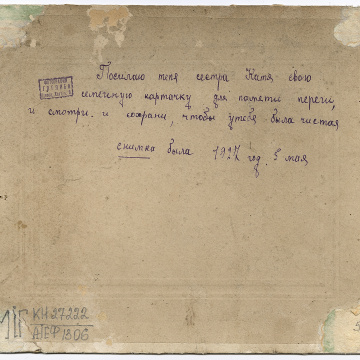 Посилаю тебя сестра Катя свою
семейную карточку для памяти береги
и смотри. и сохрани, чтобы у тебя была чистая
снимка была 1927 год. 5 мая
КП 27222
АГЕФ 1306